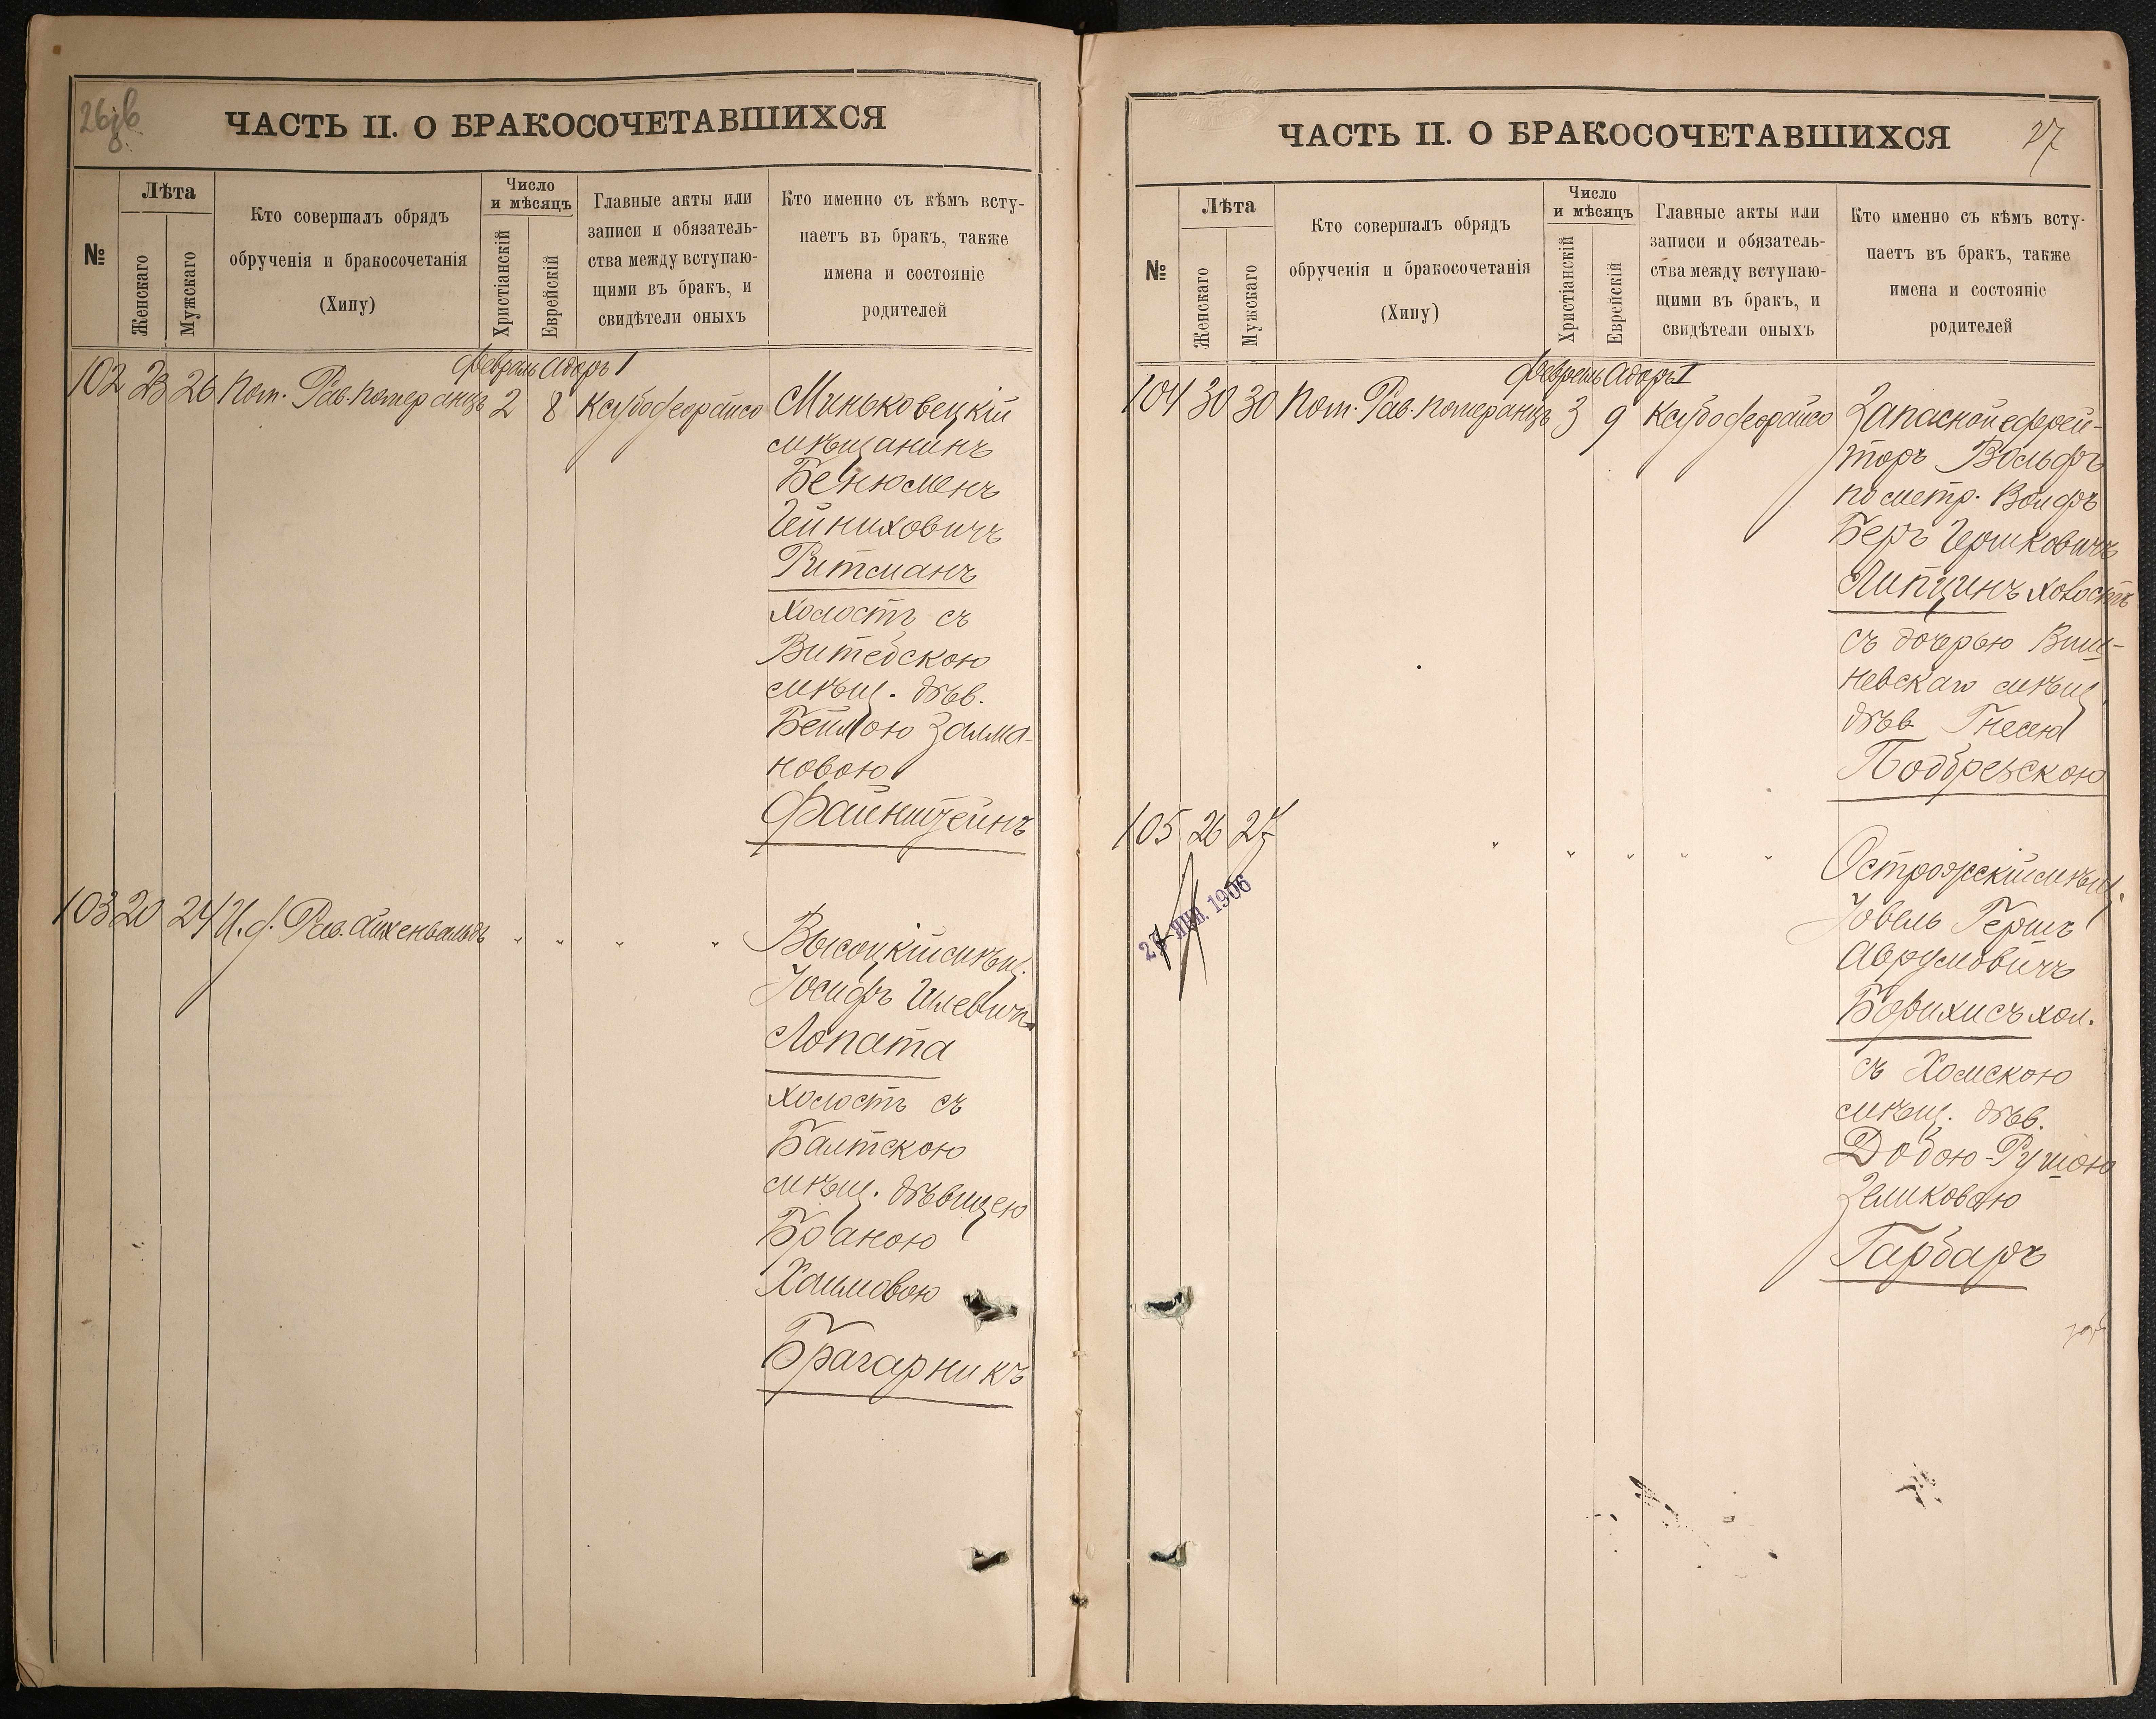 ЧАСТЬ II. О БРАКОСОЧЕТАВШИХСЯ
№
Лѣта
Женскаго
Мужскаго
Кто совершалъ обрядъ
обрученія и бракосочетанія
(Хипу)
Число
и мѣсяцъ
Христіанскій
Еврейскій
Главные акты или
записи и обязатель-
ства между вступаю-
щими въ бракъ, и
свидѣтели оныхъ
Кто именно съ кѣмъ всту-
паетъ въ бракъ, также
имена и состояніе
родителей
Февраль Адоръ I
102 23 26 Пом. Рав. Померанцъ 2 8 Ксубо феорайсо Миньковецкій
мѣщанинъ
Бенюменъ
Гейниховичъ
Ритманъ
холостъ съ
Витебскою
мѣщ. дѣв.
Бейлою Залма-
новою
Файнштейнъ
103 20 24 И. д. Рав. Айхенвальдъ " " " " Высоцкій мѣщ.
Іосифъ Шлевичъ
Лопата
холостъ съ
Балтскою
мѣщ. дѣвицею
Браною
Хаимовою
Брагарникъ
ЧАСТЬ II. О БРАКОСОЧЕТАВШИХСЯ
27
№
Лѣта
Женскаго
Мужскаго
Кто совершалъ обрядъ
обрученія и бракосочетанія
(Хипу)
Число
и мѣсяцъ
Христіанскій
Еврейскій
Главные акты или
записи и обязатель-
ства между вступаю-
щими въ бракъ, и
свидѣтели оныхъ
Кто именно съ кѣмъ всту-
паетъ въ бракъ, также
имена и состояніе
родителей
Февраль Адоръ I
104 30 30 Пом. Рав. Померанцъ 3 9 Ксубо феорайсо Запасной ефрей-
торъ Вольфъ
по метр. Волфъ
Беръ Гершковичъ
Липцинъ холостъ
съ дочерью Виш-
невскаго мѣщ.
дѣв Гнесею
Подбрезскою
105 26 27 " " " " " Острожскій мѣщ.
Іовель Гершъ
Аврумовичъ
Борихисъ хол.
съ Хомскою
мѣщ. дѣв.
Добою-Рушою
Зеликовою
Гарбаръ
ЯНВ. 1906